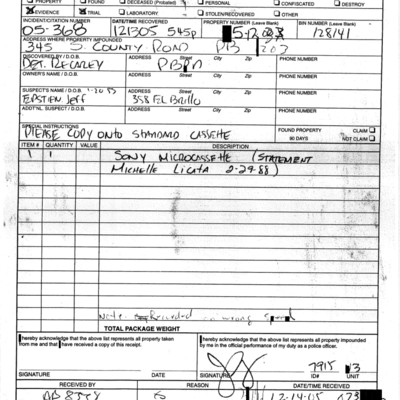 PROPERTY FOUND DECEASED (Probated) PERSONAL CONFISCATED DESTROY
EVIDENCE TRIAL LABORATORY STOLEN/RECOVERED OTHER
INCIDENT/CITATION NUMBER DATE/TIME RECOVERED PROPERTY NUMBER (Leave Blank) BIN NUMBER (Leave Blank)
05-368 121305 545p 128/41
ADDRESS WHERE PROPERTY IMPOUNDED Street City Zip PHONE NUMBER
345 S. COUNTY ROAD PB
DISCOVERED BY / D.O.B. ADDRESS Street City Zip PHONE NUMBER
DET. RECAREY PBPD
OWNER'S NAME / D.O.B. ADDRESS Street City Zip PHONE NUMBER
SUSPECT'S NAME / D.O.B. ADDRESS Street City Zip PHONE NUMBER
EPSTIEN Jeff 358 El Brillo
ADDT'NL SUSPECT / D.O.B. ADDRESS Street City Zip PHONE NUMBER
SPECIAL INSTRUCTIONS FOUND PROPERTY CLAIM
PLEASE COPY ONTO STANDARD CASSETTE 90 DAYS NOT CLAIM
ITEM # QUANTITY VALUE DESCRIPTION
1 1 SONY MICROCASSETTE (STATEMENT
MICHELLE LICATA 2-29-88)
Note Recorded on wrong speed
TOTAL PACKAGE WEIGHT
I hereby acknowledge that the above list represents all property taken from me and that I have received a copy of this receipt.
I hereby acknowledge that the above list represents all property impounded by me in the official performance of my duty as a police officer.
7915
SIGNATURE DATE SIGNATURE ID# UNIT
RECEIVED BY REASON DATE/TIME RECEIVED
12-14-05